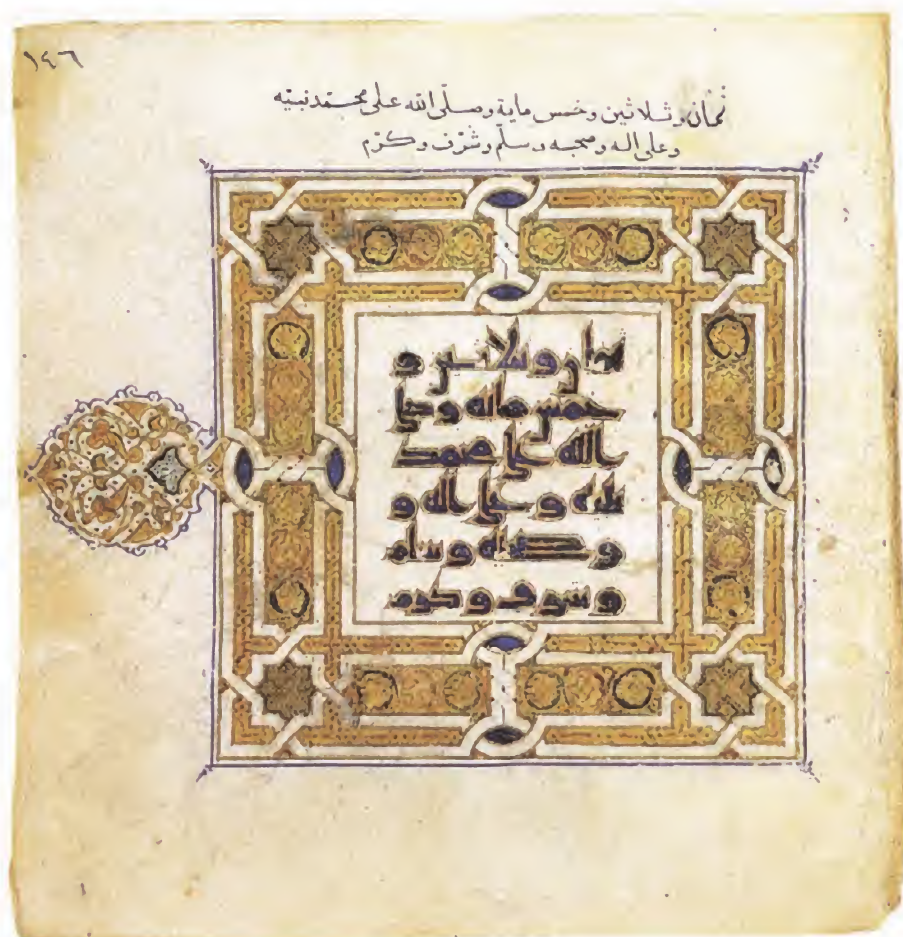 ١٤٦
ثمان وثلاثين وخمس ماية وصلّى الله على محمّد نبيّه
وعلى اله وصحبه وسلّم وشرّف وكرّم
ثمان وثلاثين و
خمس مائه وصلى
الله على محمد
نبيه وعلى اله و
وصحبه وسلم
وشرف وكرم